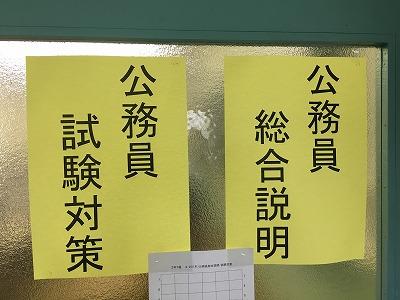 公務員
総合説明
公務員
試験対策